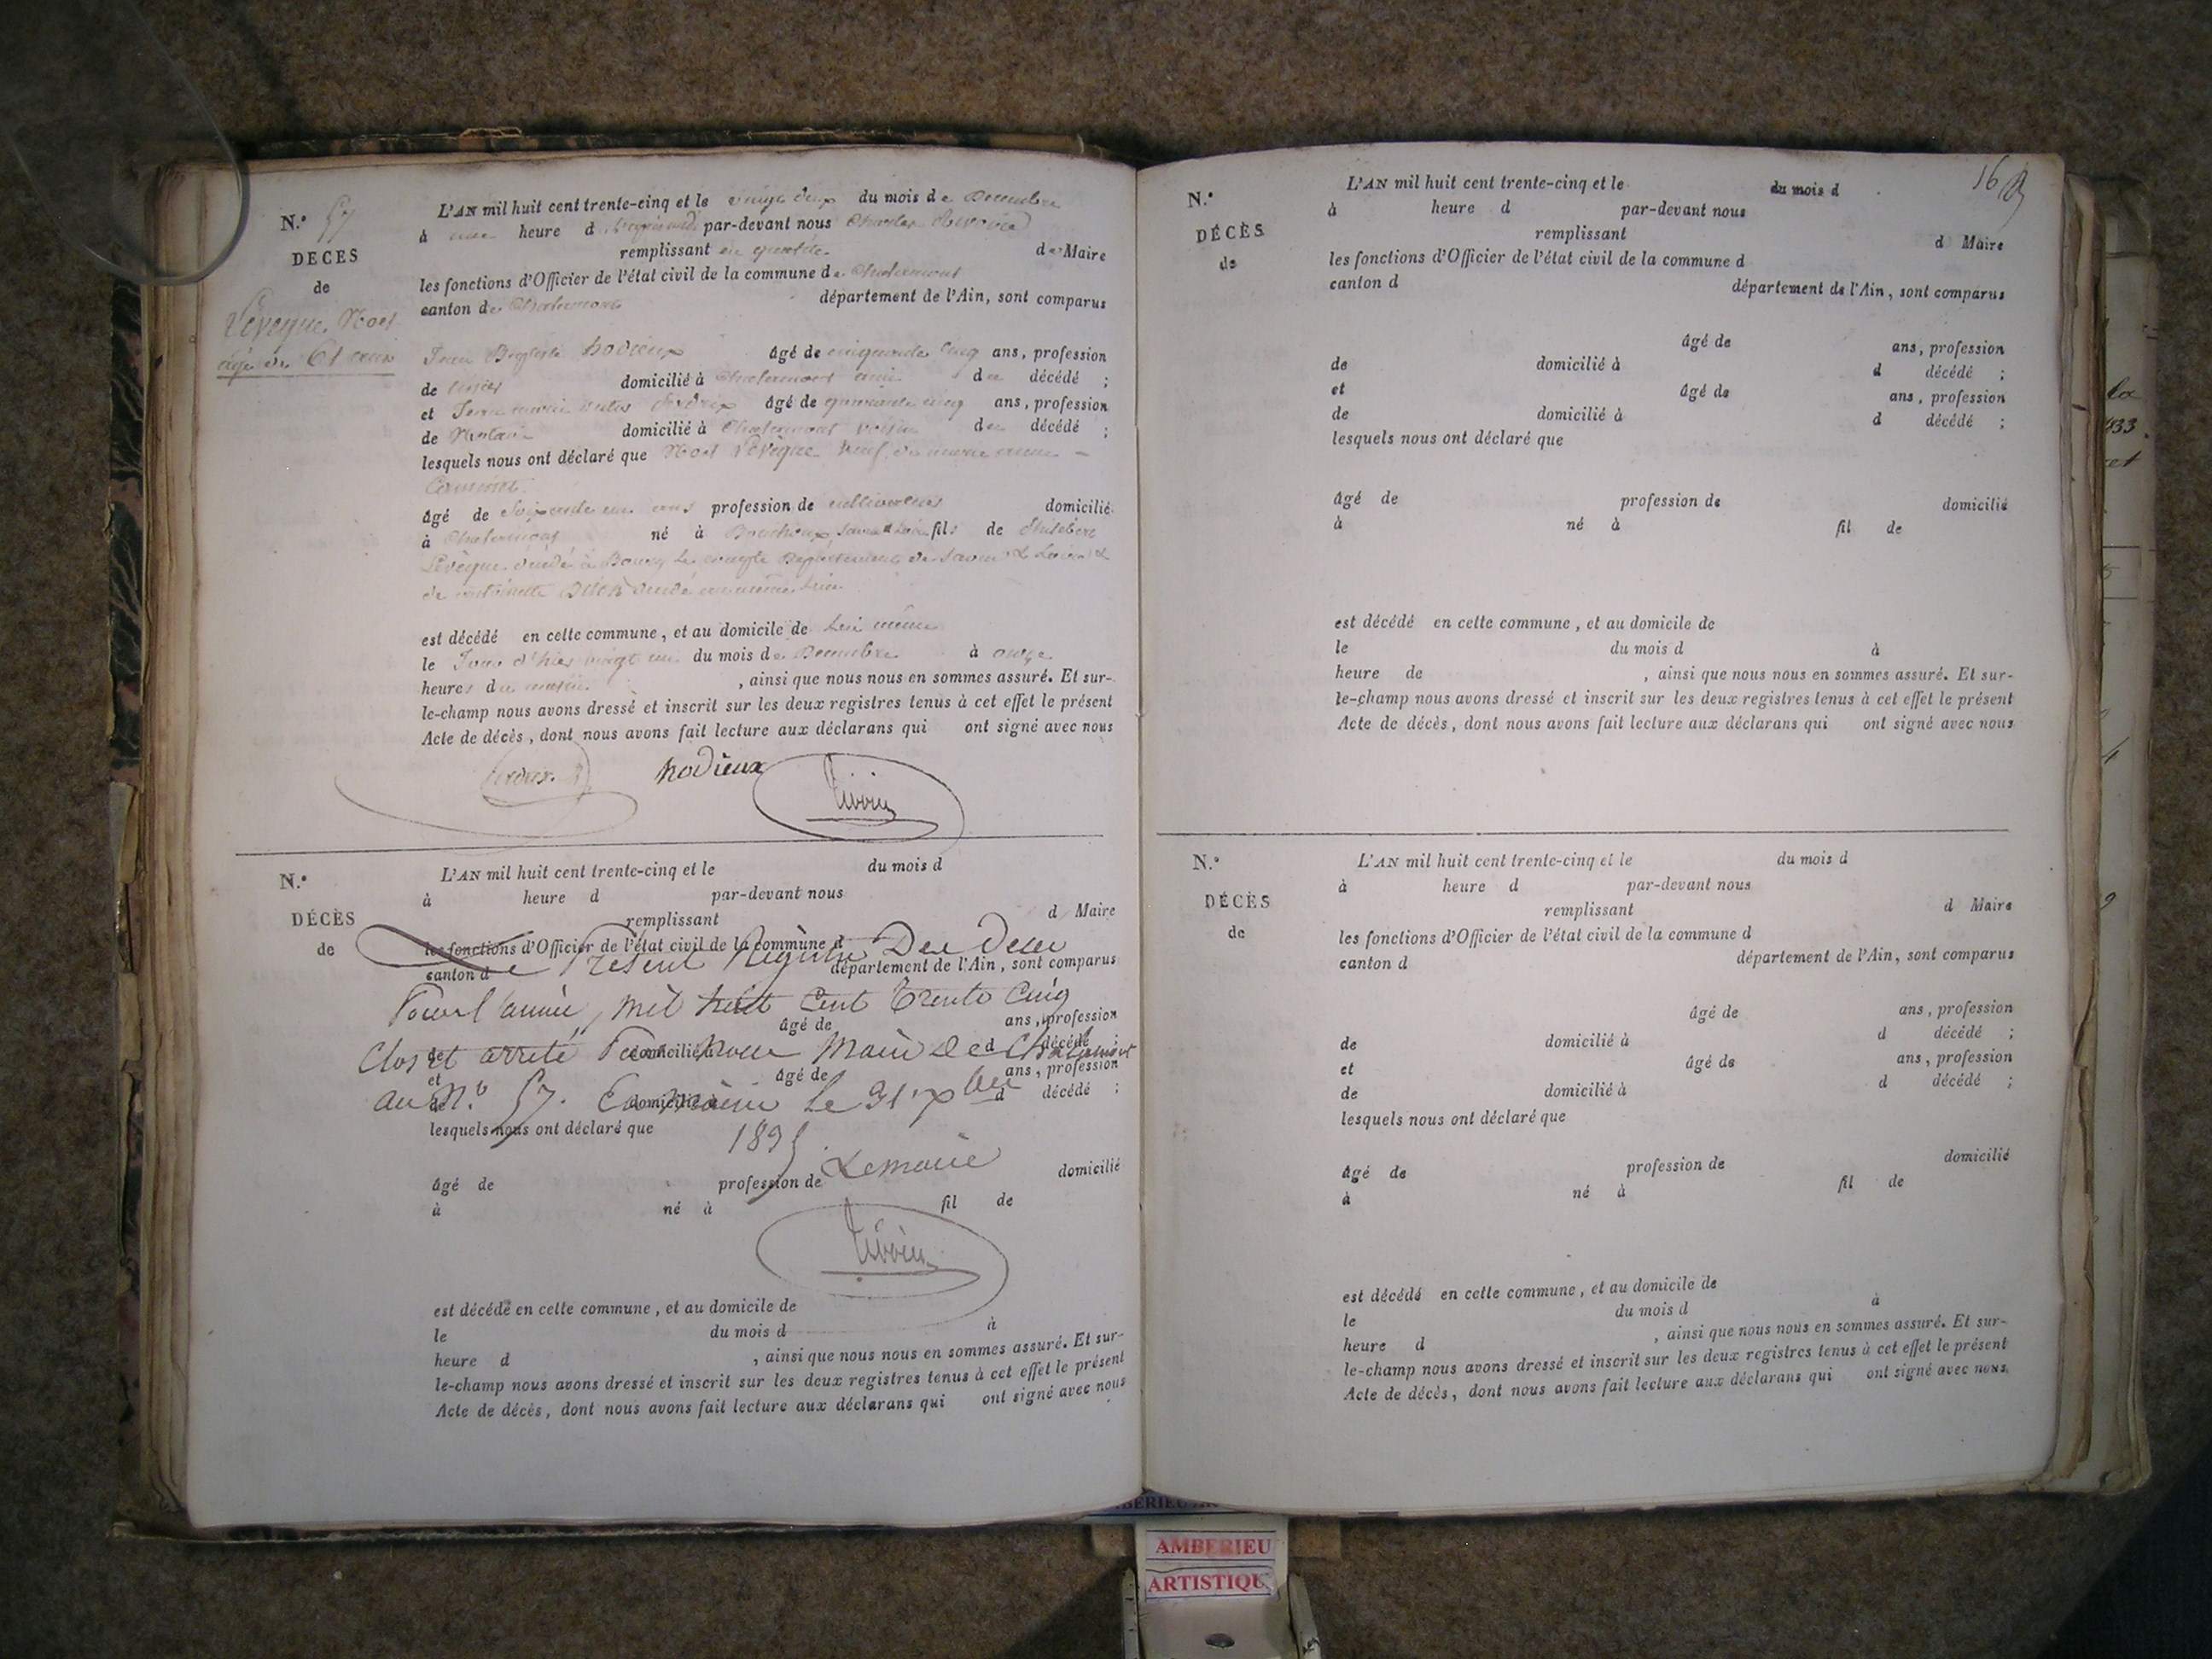 N.° 57
DÉCÈS
de
Lévêque Noel
âgé de 61 ans
L'AN mil huit cent trente-cinq et le vingt deux du mois de Décembre
à une heure d par-devant nous Charles
remplissant en qualité de Maire
les fonctions d'Officier de l'état civil de la commune de Chalamont
canton de Chalamont département de l'Ain, sont comparus
Jean Baptiste hodieux âgé de cinquante cinq ans, profession
de domicilié à Chalamont ami du décédé ;
et Jean marie âgé de quarante cinq ans, profession
de Notaire domicilié à Chalamont voisin du décédé ;
lesquels nous ont déclaré que Noel Lévêque veuf de marie
âgé de Soixante un ans profession de cultivateur domicilié
à Chalamont né à fils de
Lévêque décédé à Bourg Département de Saone & Loire &
de décédé au même lieu
est décédé en cette commune, et au domicile de lui même
le Jour d'hier vingt un du mois de Décembre à onze
heures du matin , ainsi que nous nous en sommes assuré. Et sur-
le-champ nous avons dressé et inscrit sur les deux registres tenus à cet effet le présent
Acte de décès, dont nous avons fait lecture aux déclarans qui ont signé avec nous
hodieux
N.°
DÉCÈS
de
L'AN mil huit cent trente-cinq et le du mois d
à heure d par-devant nous
remplissant d Maire
les fonctions d'Officier de l'état civil de la commune d
Le Présent Registre Des Deces
canton d département de l'Ain, sont comparus
Pour l'année mil huit Cent trente Cinq
âgé de ans, profession
Clos et arreté Par nous Maire de Chalamont
de domicilié à d décédé ;
et âgé de ans, profession
au N.° 57. En mairie Le 31 Xbre
de domicilié à d décédé ;
lesquels nous ont déclaré que
1835
Le maire
âgé de profession de domicilié
à né à fil de
est décédé en cette commune, et au domicile de
le du mois d à
heure d , ainsi que nous nous en sommes assuré. Et sur-
le-champ nous avons dressé et inscrit sur les deux registres tenus à cet effet le présent
Acte de décès, dont nous avons fait lecture aux déclarans qui ont signé avec nous
16
N.°
DÉCÈS
de
L'AN mil huit cent trente-cinq et le du mois d
à heure d par-devant nous
remplissant d Maire
les fonctions d'Officier de l'état civil de la commune d
canton d département de l'Ain, sont comparus
âgé de ans, profession
de domicilié à d décédé ;
et âgé de ans, profession
de domicilié à d décédé ;
lesquels nous ont déclaré que
âgé de profession de domicilié
à né à fil de
est décédé en cette commune, et au domicile de
le du mois d à
heure de , ainsi que nous nous en sommes assuré. Et sur-
le-champ nous avons dressé et inscrit sur les deux registres tenus à cet effet le présent
Acte de décès, dont nous avons fait lecture aux déclarans qui ont signé avec nous
N.°
DÉCÈS
de
L'AN mil huit cent trente-cinq et le du mois d
à heure d par-devant nous
remplissant d Maire
les fonctions d'Officier de l'état civil de la commune d
canton d département de l'Ain, sont comparus
âgé de ans, profession
de domicilié à d décédé ;
et âgé de ans, profession
de domicilié à d décédé ;
lesquels nous ont déclaré que
âgé de profession de domicilié
à né à fil de
est décédé en cette commune, et au domicile de
le du mois d à
heure d , ainsi que nous nous en sommes assuré. Et sur-
le-champ nous avons dressé et inscrit sur les deux registres tenus à cet effet le présent
Acte de décès, dont nous avons fait lecture aux déclarans qui ont signé avec nous
AMBERIEU
ARTISTIQU